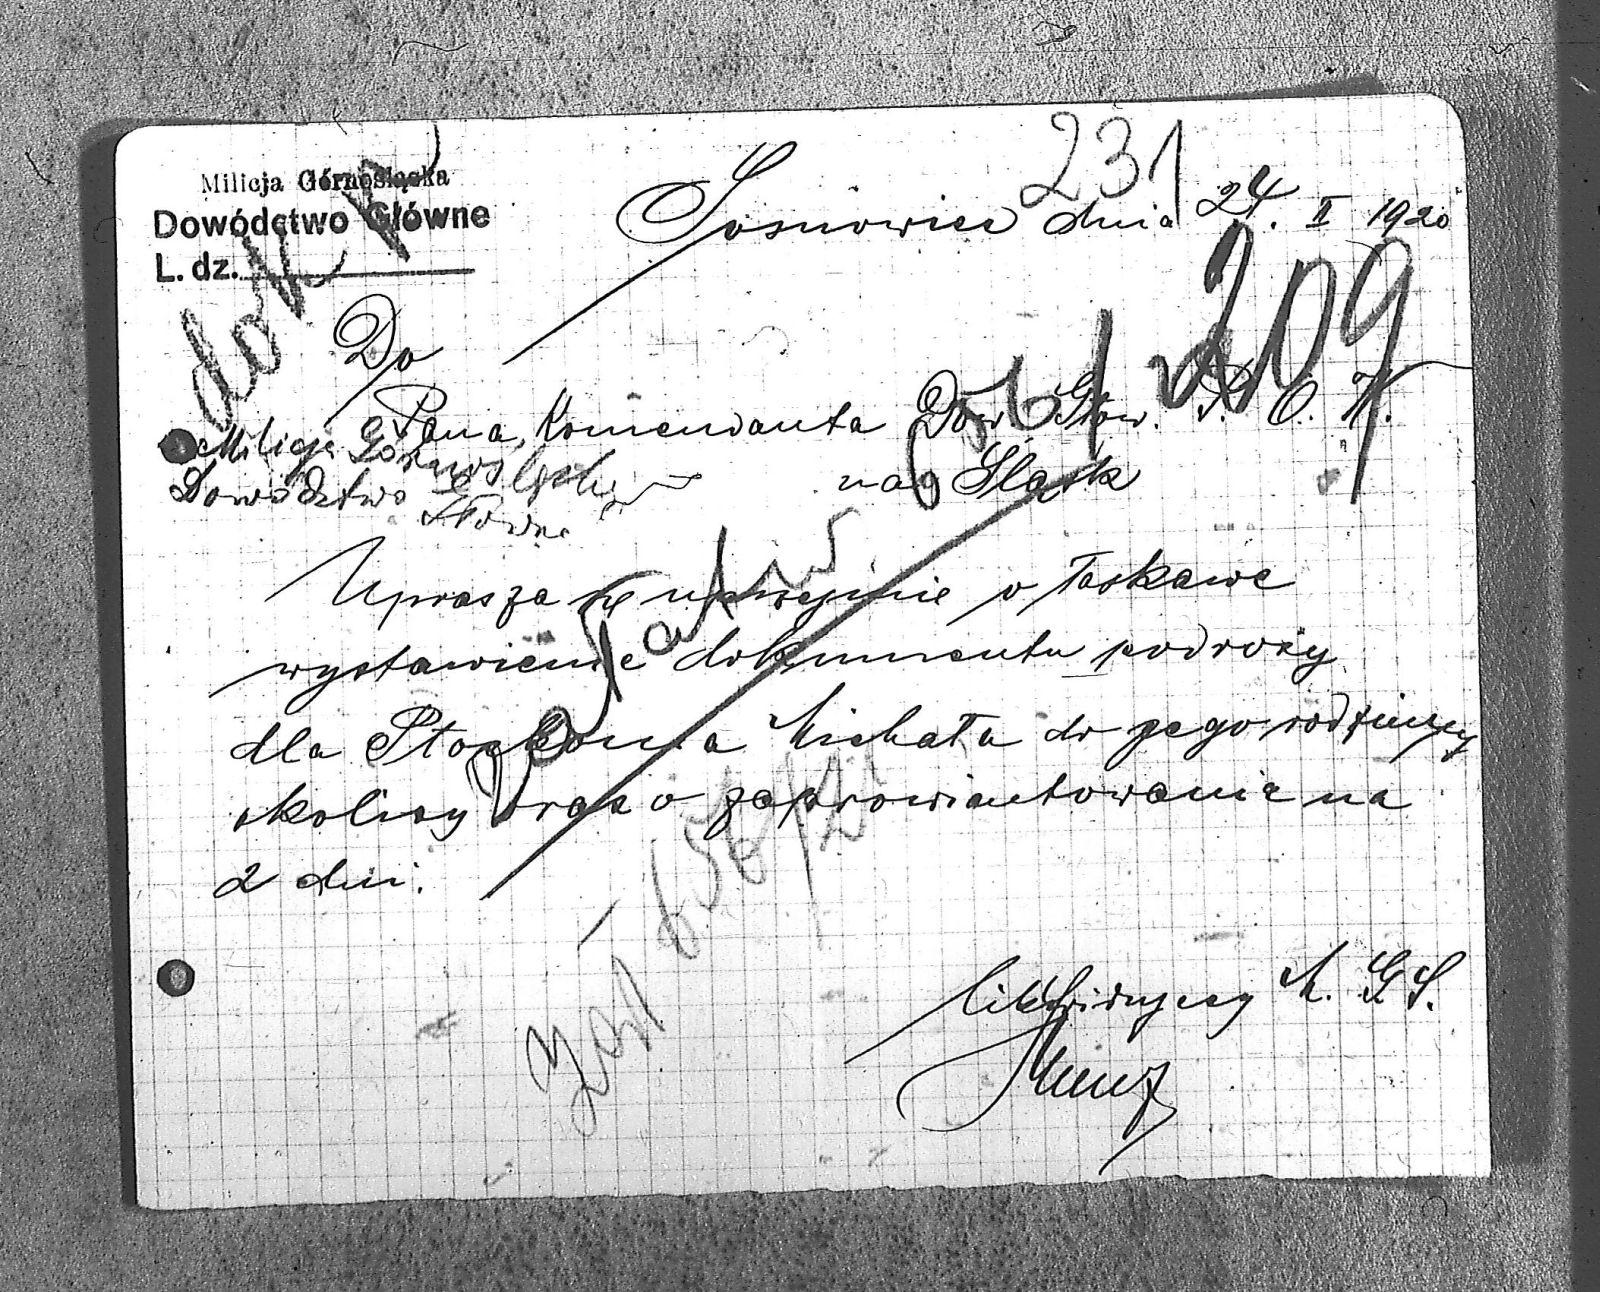 231
Milicja Górnośląska
Dowództwo Główne
L. dz.
Sosnowiec dnia 24. II 1920
dok
209
Do
Pana Komendanta Dow. Głow. P. O. W.
na Śląsk
Milicja Górnośląska
Dowództwo Główne
Uprasza się uprzejmie o łaskawe
wystawienie dokumentu podroży
dla Michała do jego rodzinnej
okolicy oraz o zaprowiantowanie na
2 dni.
Likwidujący M. G. S.